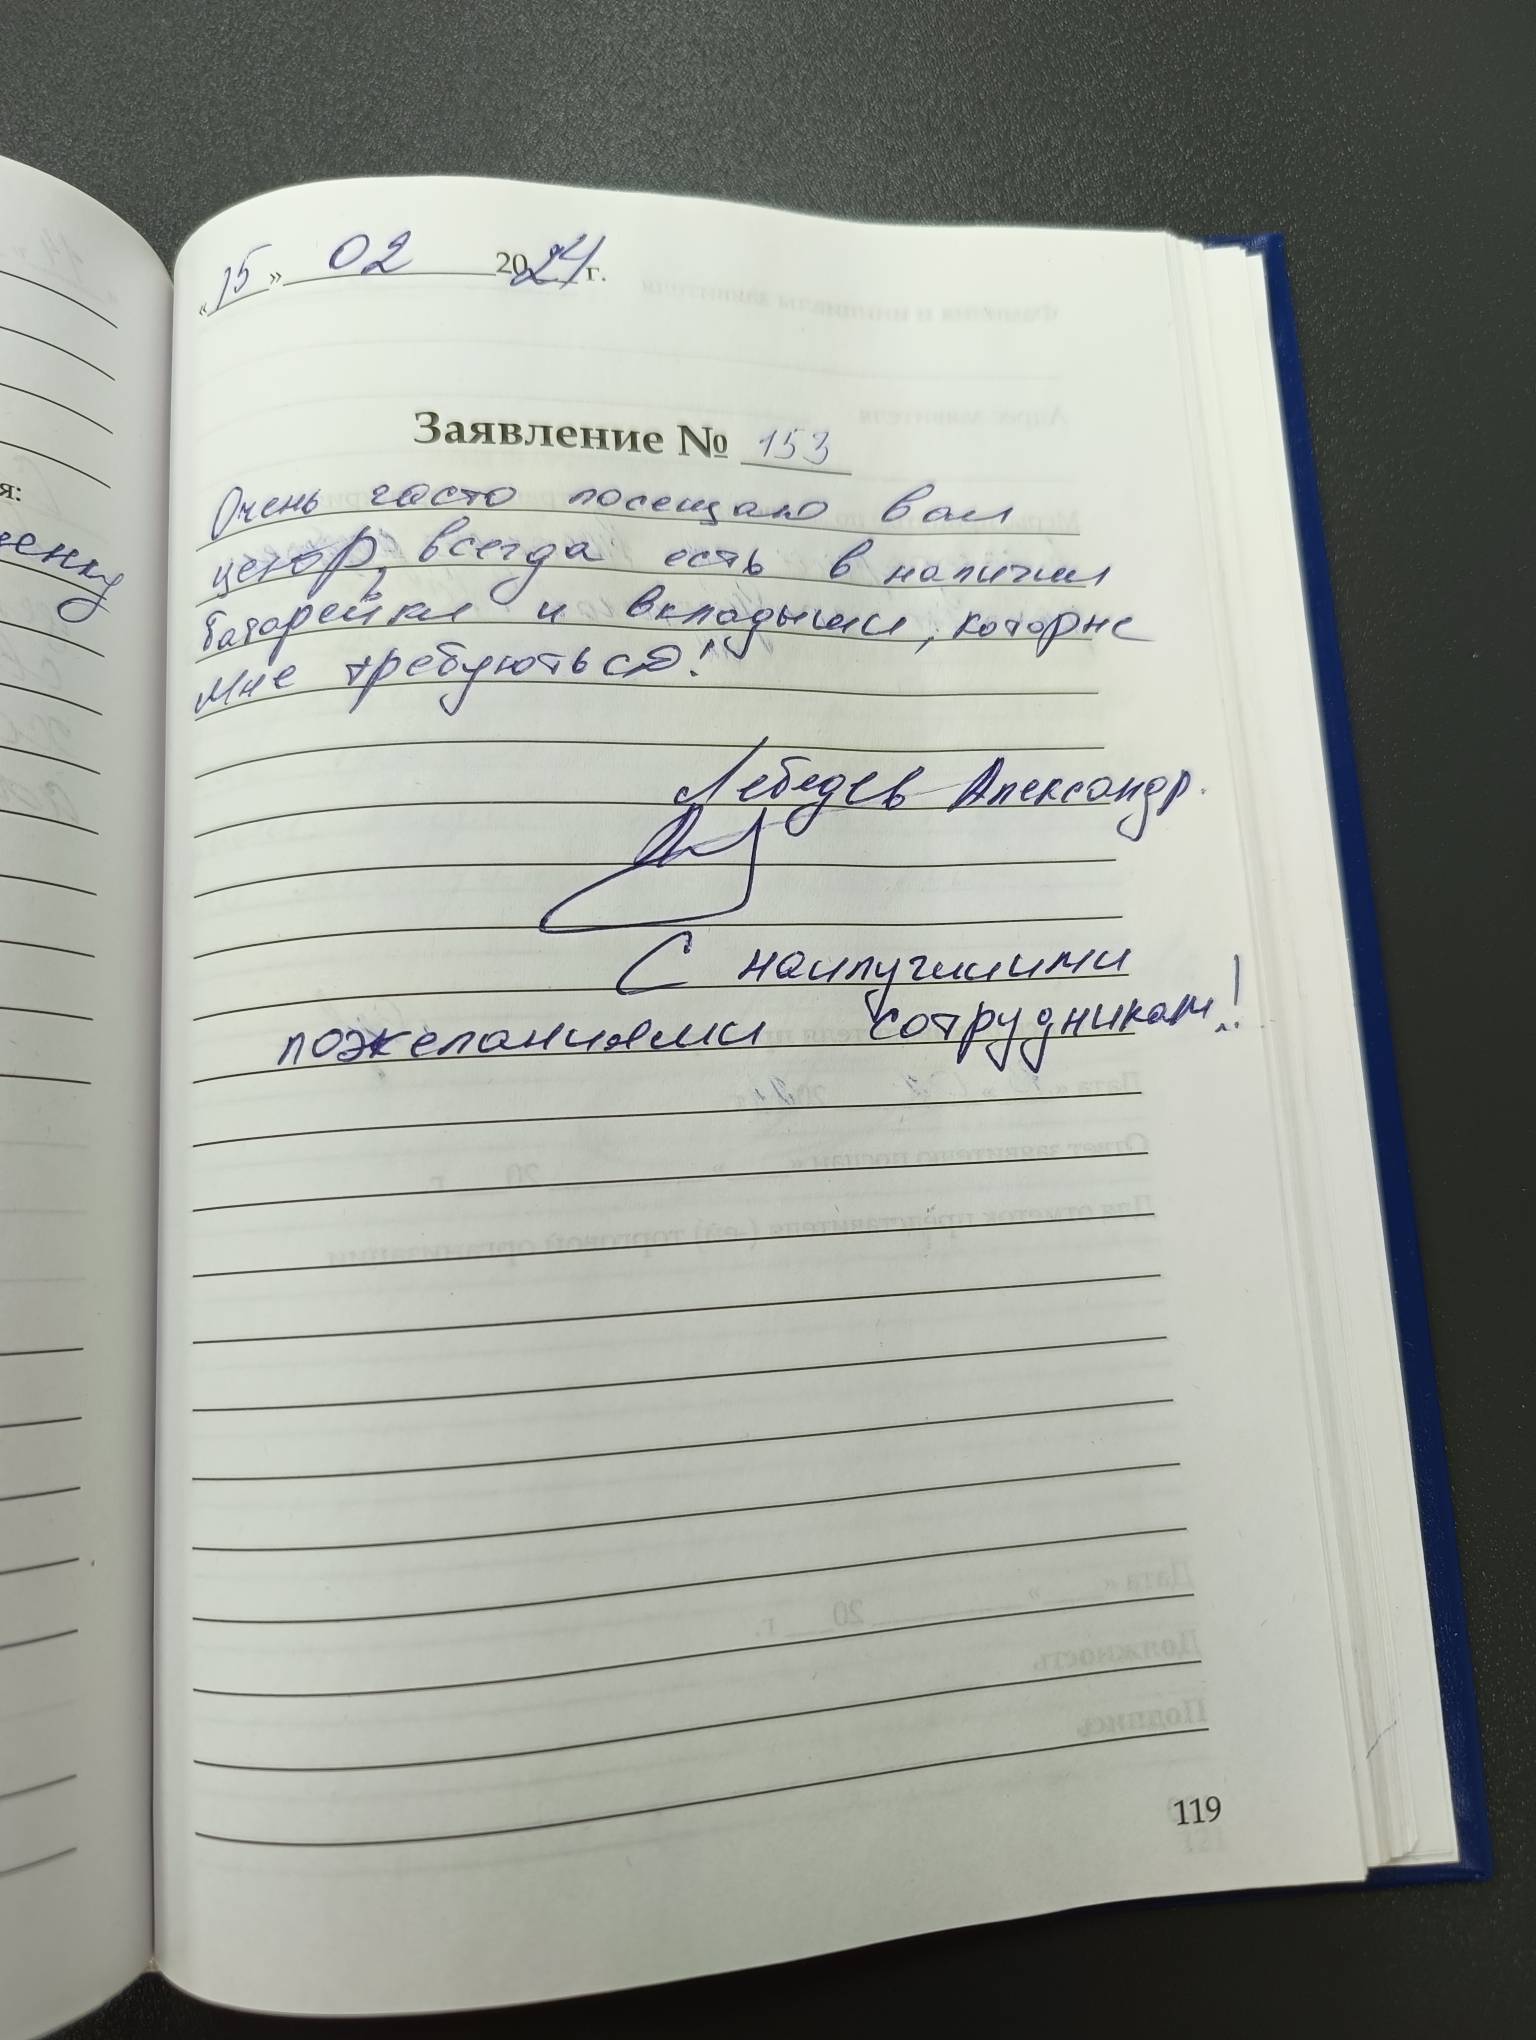 «15» 02 2024 г.
Заявление № 153
Очень часто посещаю ваш
центр, всегда есть в наличии
батарейки и вкладыши, которые
мне требуються!
Лебедев Александр.
С наилучшими
пожеланиями сотрудникам!
119
я: